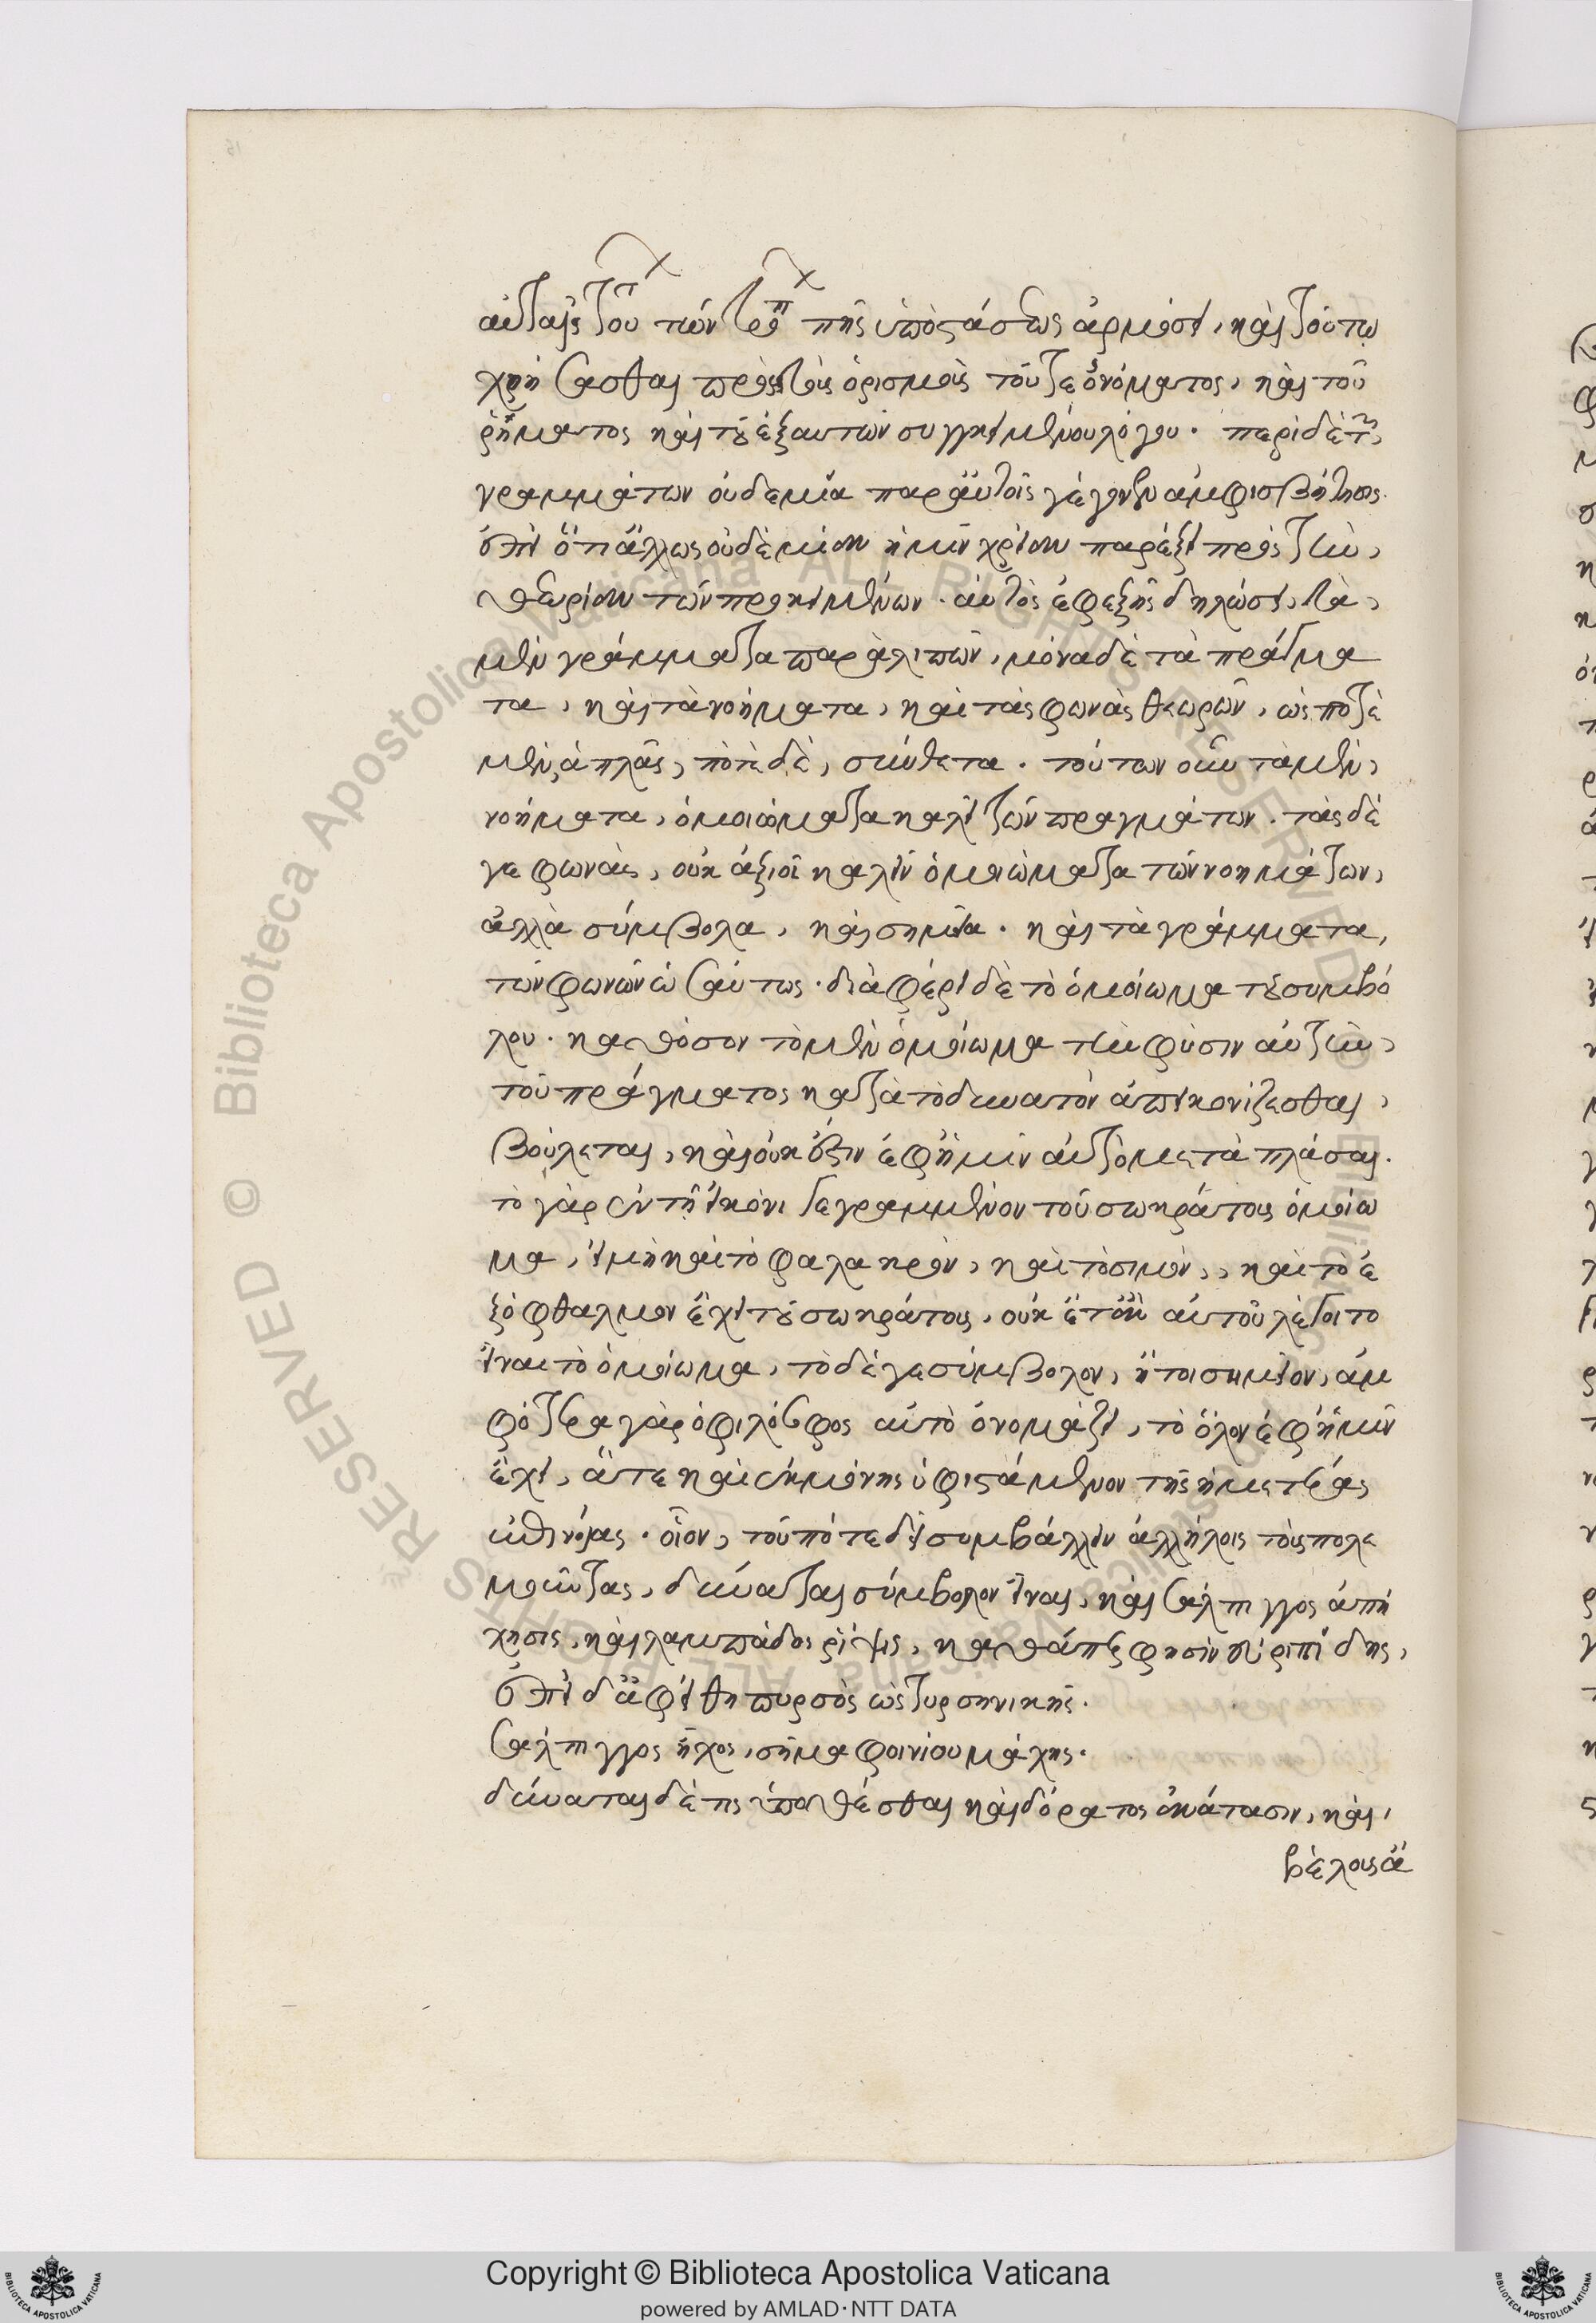 αὐταῖς τοῦ τῶν τρόπ τῆς ὑποστάσεως ἁρμόσει, καὶ τούτῳ
χρήσασθαι πρὸς τοὺς ὁρισμοὺς τοῦ τε ὀνόματος, καὶ τοῦ
ῥήματος καὶ τοῦ ἐξ αυτῶν συγκειμένου λόγου. περὶ δὲ τῶν
γραμμάτων οὐδεμία παρ' αὐτοῖς γέγονεν ἀμφισβήτησις.
ἐπεὶ ὅτι ἄλλως οὐδεμίαν ἡμῖν χρείαν παρέξει πρὸς τὴν,
θεωρίαν τῶν προκειμένων. αὐτὸς ἐφεξῆς δηλώσει, τὰ,
μὲν γράμματα παραλιπὼν, μόνα δὲ τὰ πράγμα
τα, καὶ τὰ νοήματα, καὶ τὰς φωνὰς θεωρῶν, ὡς ποτὲ
μὲν, ἁπλᾶς, ποτὲ δὲ, σύνθετα. τούτων οὖν τὰ μὲν,
νοήματα, ὁμοιώματα καλεῖ τῶν πραγμάτων. τὰς δέ
γε φωνὰς, οὐκ ἀξιοῖ καλεῖν ὁμοιώματα τῶν νοημάτων,
ἀλλὰ σύμβολα, καὶ σημεῖα. καὶ τὰ γράμματα,
τῶν φωνῶν ὡσαύτως. διαφέρει δὲ τὸ ὁμοίωμα τοῦ συμβό
λου. καθόσον τὸ μὲν ὁμοίωμα τὴν φύσιν αὐτὴν,
τοῦ πράγματος κατὰ τὸ δυνατὸν ἀπεικονίζεσθαι,
βούλεται, καὶ οὐκ ἔστιν ἐφ' ἡμῖν αὐτὸ μεταπλάσαι.
τὸ γὰρ ἐν τῇ εἰκόνι γεγραμμένον τοῦ σωκράτους ὁμοίω
μα, εἰ μὴ καὶ τὸ φαλακρὸν, καὶ τὸ σιμὸν,, καὶ τὸ ἐ
ξόφθαλμον ἔχει τοῦ σωκράτους, οὐκ ἔτ' ἂν αὐτοῦ λέγοιτο
εἶναι τὸ ὁμοίωμα, τὸ δέ γε σύμβολον, ἤτοι σημεῖον, ἀμ
φότερα γὰρ ὁ φιλόσοφος αὐτὸ ὀνομάζει, τὸ ὅλον ἐφ' ἡμῖν
ἔχει, ἅτε καὶ ἐκ μόνης ὑφιστάμενον τῆς ἡμετέρας
ἐπινοίας. οἷον, τοῦ πότε δεῖ συμβάλλειν ἀλλήλοις τοὺς πολε
μοῦντας, δύναται σύμβολον εἶναι, καὶ σάλπιγγος ἀπή
χησις, καὶ λαμπάδος ῥίψις, καθάπερ φησὶν εὐριπίδης,
ἐπεὶ δ' ἀφείθη πυρσὸς ὡς τυρσηνικῆς.
σάλπιγγος ἦχος, σῆμα φοινίου μάχης.
δύναται δέ τις ὑποθέσθαι καὶ δόρατος ἀνάτασιν, καὶ,
βέλους ἄ